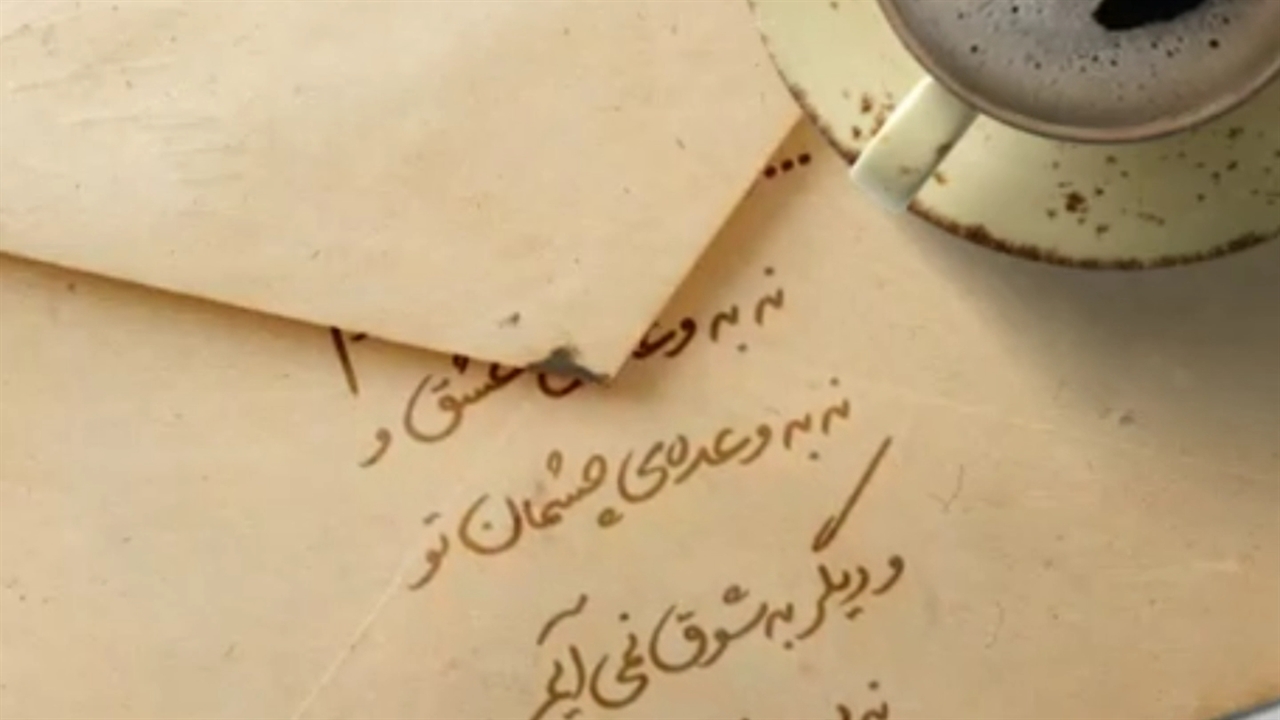 ...
نه به وعده‌ی عشق و
نه به وعده‌ی چشمان تو
و دیگر به شوق نمی‌آیم